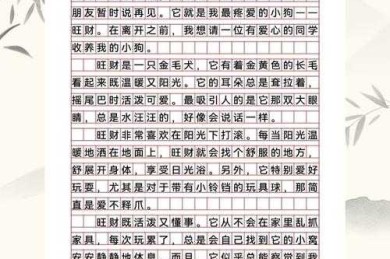 朋友暂时说再见。它就是我最疼爱的小狗——
旺财。在离开之前，我想请一位有爱心的同学
收养我的小狗。
旺财是一只金毛犬，它有着金黄色的长毛
看起来既温暖又阳光。它的耳朵总是耷拉着，
摇尾巴时活泼可爱。最吸引人的是它那双大眼
睛，总是水汪汪的，好像会说话一样。
旺财非常喜欢在阳光下打滚。每当阳光温
暖地洒在地面上，旺财就会找个舒服的地方，
舒展开身体，享受日光浴。另外，它特别爱好
玩耍，尤其是对于带有小铃铛的玩具球，那简
直是爱不释爪。
旺财既活泼又懂事。它从不会在家里乱抓
家具，每次玩累了，总是会自己找到它的小窝
安安静静地休息。而且，它似乎总能察觉到我